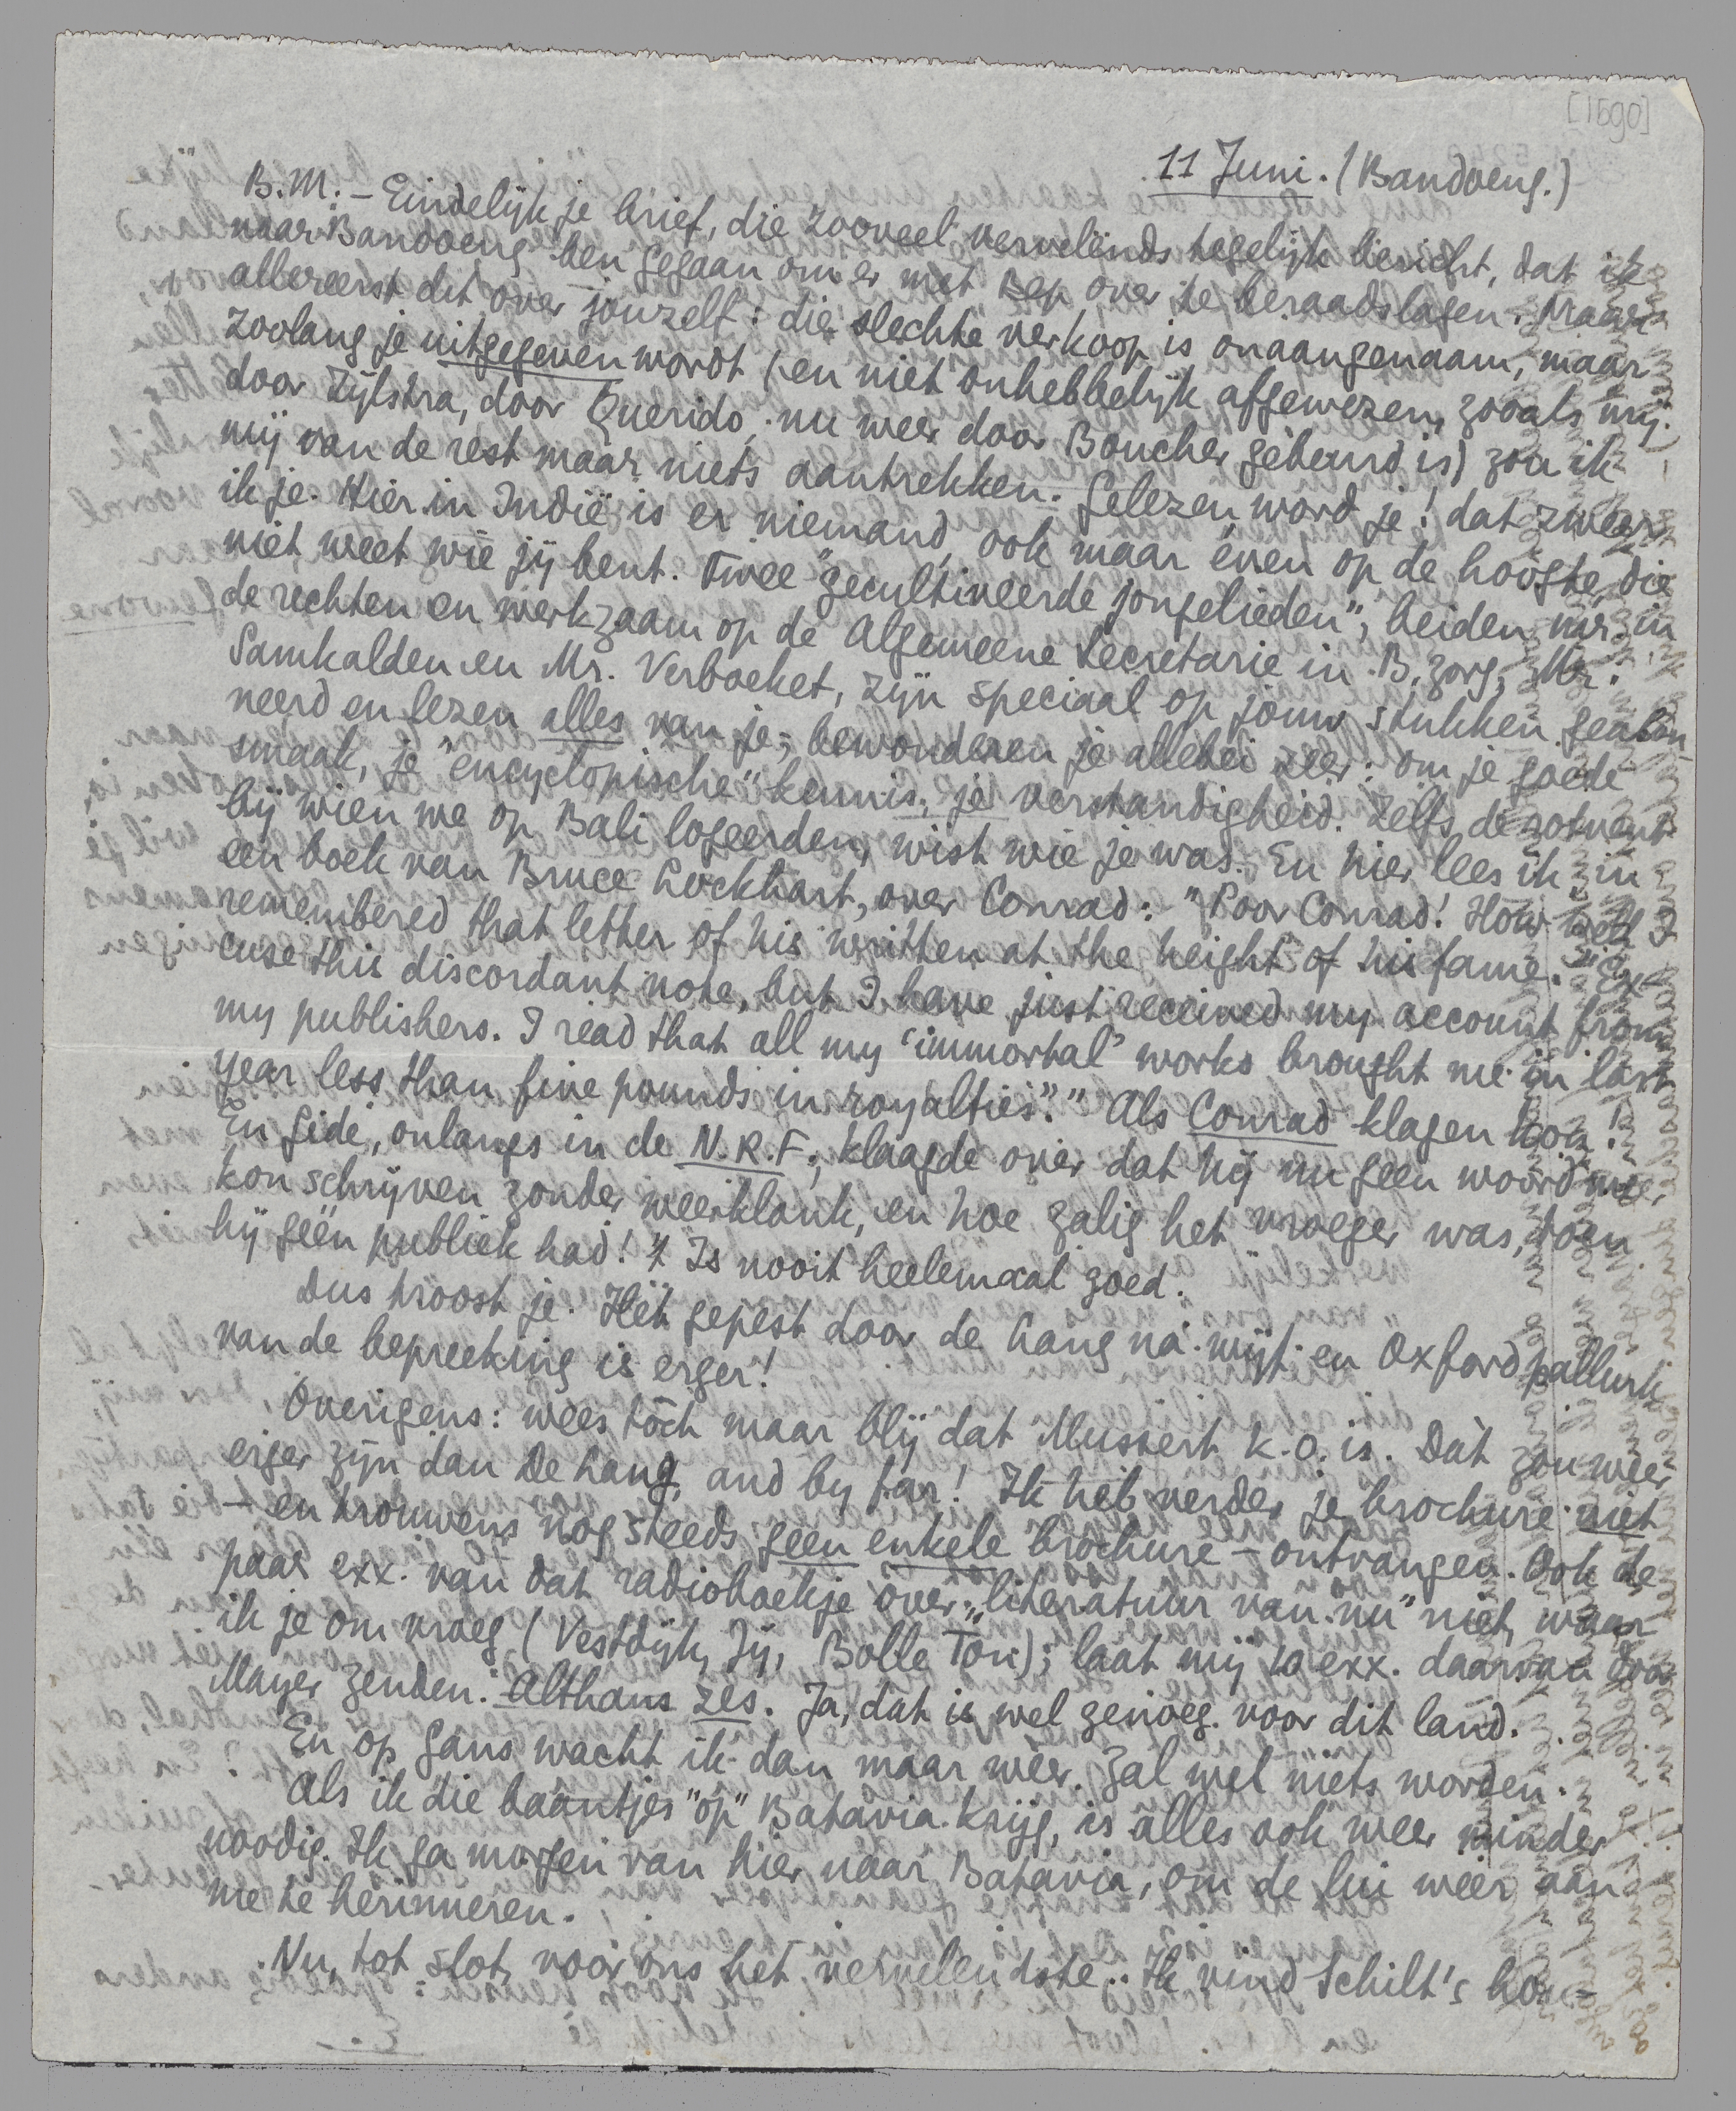 [1590]
11 Juni. (Bandoeng.)
B.M. - Eindelijk je brief, die zooveel vervelends tegelijk bericht, dat ik
naar Bandoeng ben gegaan om er met Bep over te beraadslagen. Maar
allereerst dit over jouzelf: die slechte verkoop is onaangenaam, maar
zoolang je uitgegeven wordt (en niet onhebbelijk afgewezen, zooals mij
door Zijlstra, door Querido, nu weer door Boucher gebeurd is) zou ik
mij van de rest maar niets aantrekken. Gelezen word je! dat zweer
ik je. Hier in Indië is er niemand, ook maar even op de hoogte, die
niet weet wie jij bent. Twee "gecultiveerde jongelieden", beiden mr. in
de rechten en werkzaam op de Algemeene Secretarie in B.zorg, Mr.
Samkalden en Mr. Verboeket, zijn speciaal op jouw stukken geabon-
neerd en lezen alles van je; bewonderen je allebei zeer: om je goede
smaak, je "encyclopische" kennis, je verstandigheid. Zelfs de zotvent
bij wien we op Bali logeerden, wist wie je was. En hier lees ik in
een boek van Bruce Lockhart, over Conrad: "Poor Conrad! How well I
remembered that letter of his written at the height of his fame. "Ex-
cuse this discordant note, but I have just received my account from
my publishers. I read that all my 'immortal' works brought me in last
year less than five pounds in royalties"." Als Conrad klagen kon!
En Gide, onlangs in de N.R.F., klaagde over dat hij nu geen woord meer
kon schrijven zonder weerklank, en hoe zalig het vroeger was, toen
hij géén publiek had! 't Is nooit heelemaal goed.
Dus troost je. Het gepest door de Hang na mijt en Oxfordpallurk
van de bepreeking is erger!
Overigens: wees tòch maar blij dat Mussert k.o. is. Dàt zou weer
erger zijn dan De Hang, and by far! Ik heb verder je brochure niet
- en trouwens nog steeds geen enkele brochure - ontvangen. Ook de
paar exx. van dat radioboekje over "literatuur van nu" niet, waar
ik je om vroeg (Vestdijk, Jij, Bolle Ton); laat mij 10 exx. daarvan door
Mayer zenden. Althans zes. Ja, dat is wel genoeg voor dit land.
En op Gans wacht ik dan maar wéér. Zal wel niets worden.
Als ik die baantjes "op" Batavia krijg, is alles ook weer minder
noodig. Ik ga morgen van hier naar Batavia, om de lui wéér aan
me te herinneren.
Nu, tot slot, voor ons het vervelendste. Ik vind Schilt's hou-